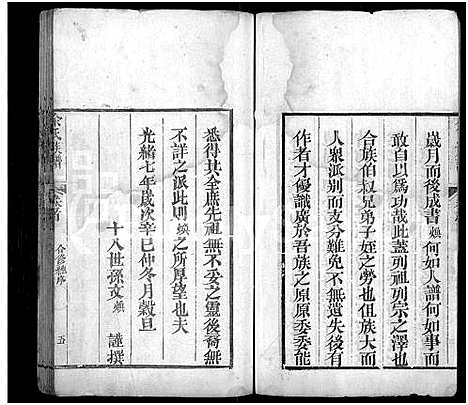 歲月而後成書煥何如人譜何如事而
敢自以爲功哉此蓋列祖列宗之澤
合族伯叔兄弟子姪之勞也但族大而
人衆派別而支分難免不無遺失後有
作者才優識廣於吾族之原原委委能
悉得其全庶先祖無不妥之靈後裔無
不詳之派此則煥之所厚望也夫
光緒七年歲次辛巳仲冬月穀旦
十八世孫文煥 謹撰
余氏族譜 卷首 合修總序 五